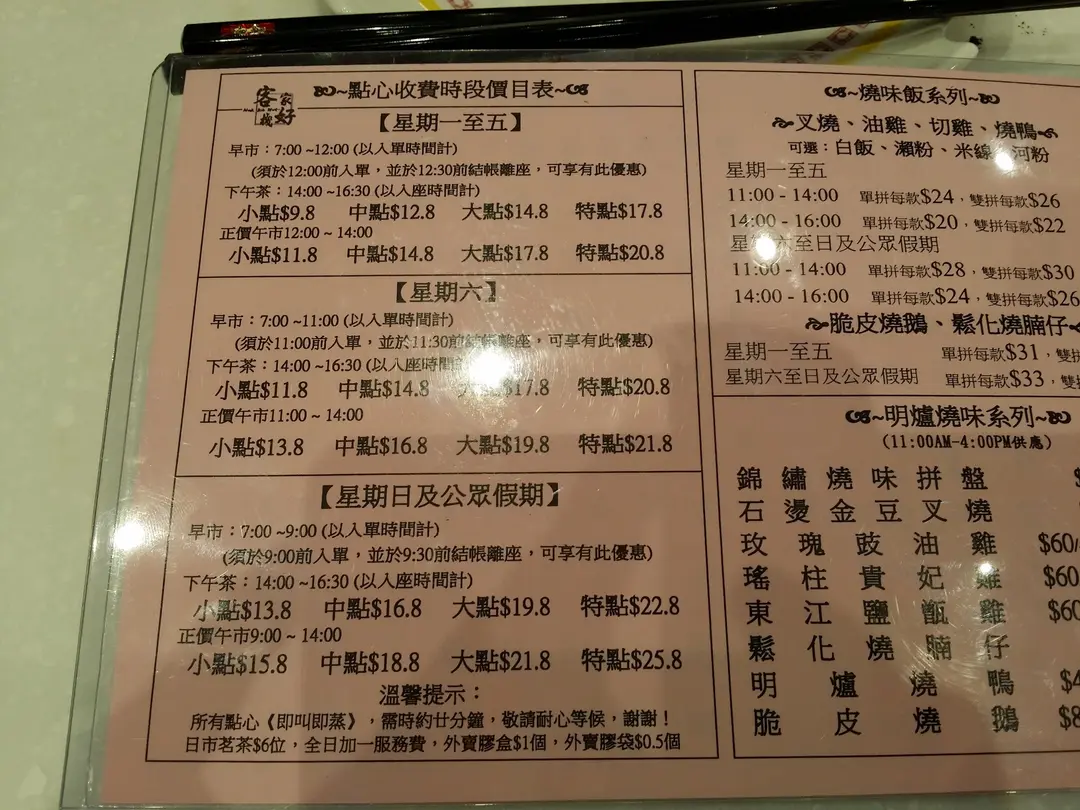 客家好棧
~點心收費時段價目表~
【星期一至五】
早市：7:00 ~12:00 (以入單時間計)
(須於12:00前入單，並於12:30前結帳離座，可享有此優惠)
下午茶：14:00 ~16:30 (以入座時間計)
小點$9.8 中點$12.8 大點$14.8 特點$17.8
正價午市12:00 ~ 14:00
小點$11.8 中點$14.8 大點$17.8 特點$20.8
【星期六】
早市：7:00 ~11:00 (以入單時間計)
(須於11:00前入單，並於11:30前結帳離座，可享有此優惠)
下午茶：14:00 ~16:30 (以入座時間計)
小點$11.8 中點$14.8 大點$17.8 特點$20.8
正價午市11:00 ~ 14:00
小點$13.8 中點$16.8 大點$19.8 特點$21.8
【星期日及公眾假期】
早市：7:00 ~9:00 (以入單時間計)
(須於9:00前入單，並於9:30前結帳離座，可享有此優惠)
下午茶：14:00 ~16:30 (以入座時間計)
小點$13.8 中點$16.8 大點$19.8 特點$22.8
正價午市9:00 ~ 14:00
小點$15.8 中點$18.8 大點$21.8 特點$25.8
溫馨提示：
所有點心《即叫即蒸》，需時約廿分鐘，敬請耐心等候，謝謝！
日市茗茶$6位，全日加一服務費，外賣膠盒$1個，外賣膠袋$0.5個
~燒味飯系列~
叉燒、油雞、切雞、燒鴨
可選：白飯、瀨粉、米線、河粉
星期一至五
11:00 - 14:00 單拼每款$24，雙拼每款$26
14:00 - 16:00 單拼每款$20，雙拼每款$22
星期六至日及公眾假期
11:00 - 14:00 單拼每款$28，雙拼每款$30
14:00 - 16:00 單拼每款$24，雙拼每款$26
脆皮燒鵝、鬆化燒腩仔
星期一至五 單拼每款$31，雙拼
星期六至日及公眾假期 單拼每款$33，雙拼
~明爐燒味系列~
(11:00AM-4:00PM供應)
錦繡燒味拼盤
石燙金豆叉燒
玫瑰豉油雞 $60/
瑤柱貴妃雞 $60
東江鹽甑雞 $60
鬆化燒腩仔
明爐燒鴨 $4
脆皮燒鵝 $8